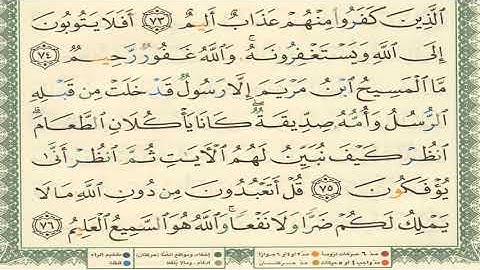 الَّذِينَ كَفَرُوا مِنْهُمْ عَذَابٌ أَلِيمٌ ٧٣ أَفَلَا يَتُوبُونَ
إِلَى اللَّهِ وَيَسْتَغْفِرُونَهُ ۚ وَاللَّهُ غَفُورٌ رَّحِيمٌ ٧٤
مَّا الْمَسِيحُ ابْنُ مَرْيَمَ إِلَّا رَسُولٌ قَدْ خَلَتْ مِن قَبْلِهِ
الرُّسُلُ وَأُمُّهُ صِدِّيقَةٌ ۖ كَانَا يَأْكُلَانِ الطَّعَامَ ۗ
انظُرْ كَيْفَ نُبَيِّنُ لَهُمُ الْآيَاتِ ثُمَّ انظُرْ أَنَّىٰ
يُؤْفَكُونَ ٧٥ قُلْ أَتَعْبُدُونَ مِن دُونِ اللَّهِ مَا لَا
يَمْلِكُ لَكُمْ ضَرًّا وَلَا نَفْعًا ۚ وَاللَّهُ هُوَ السَّمِيعُ الْعَلِيمُ ٧٦